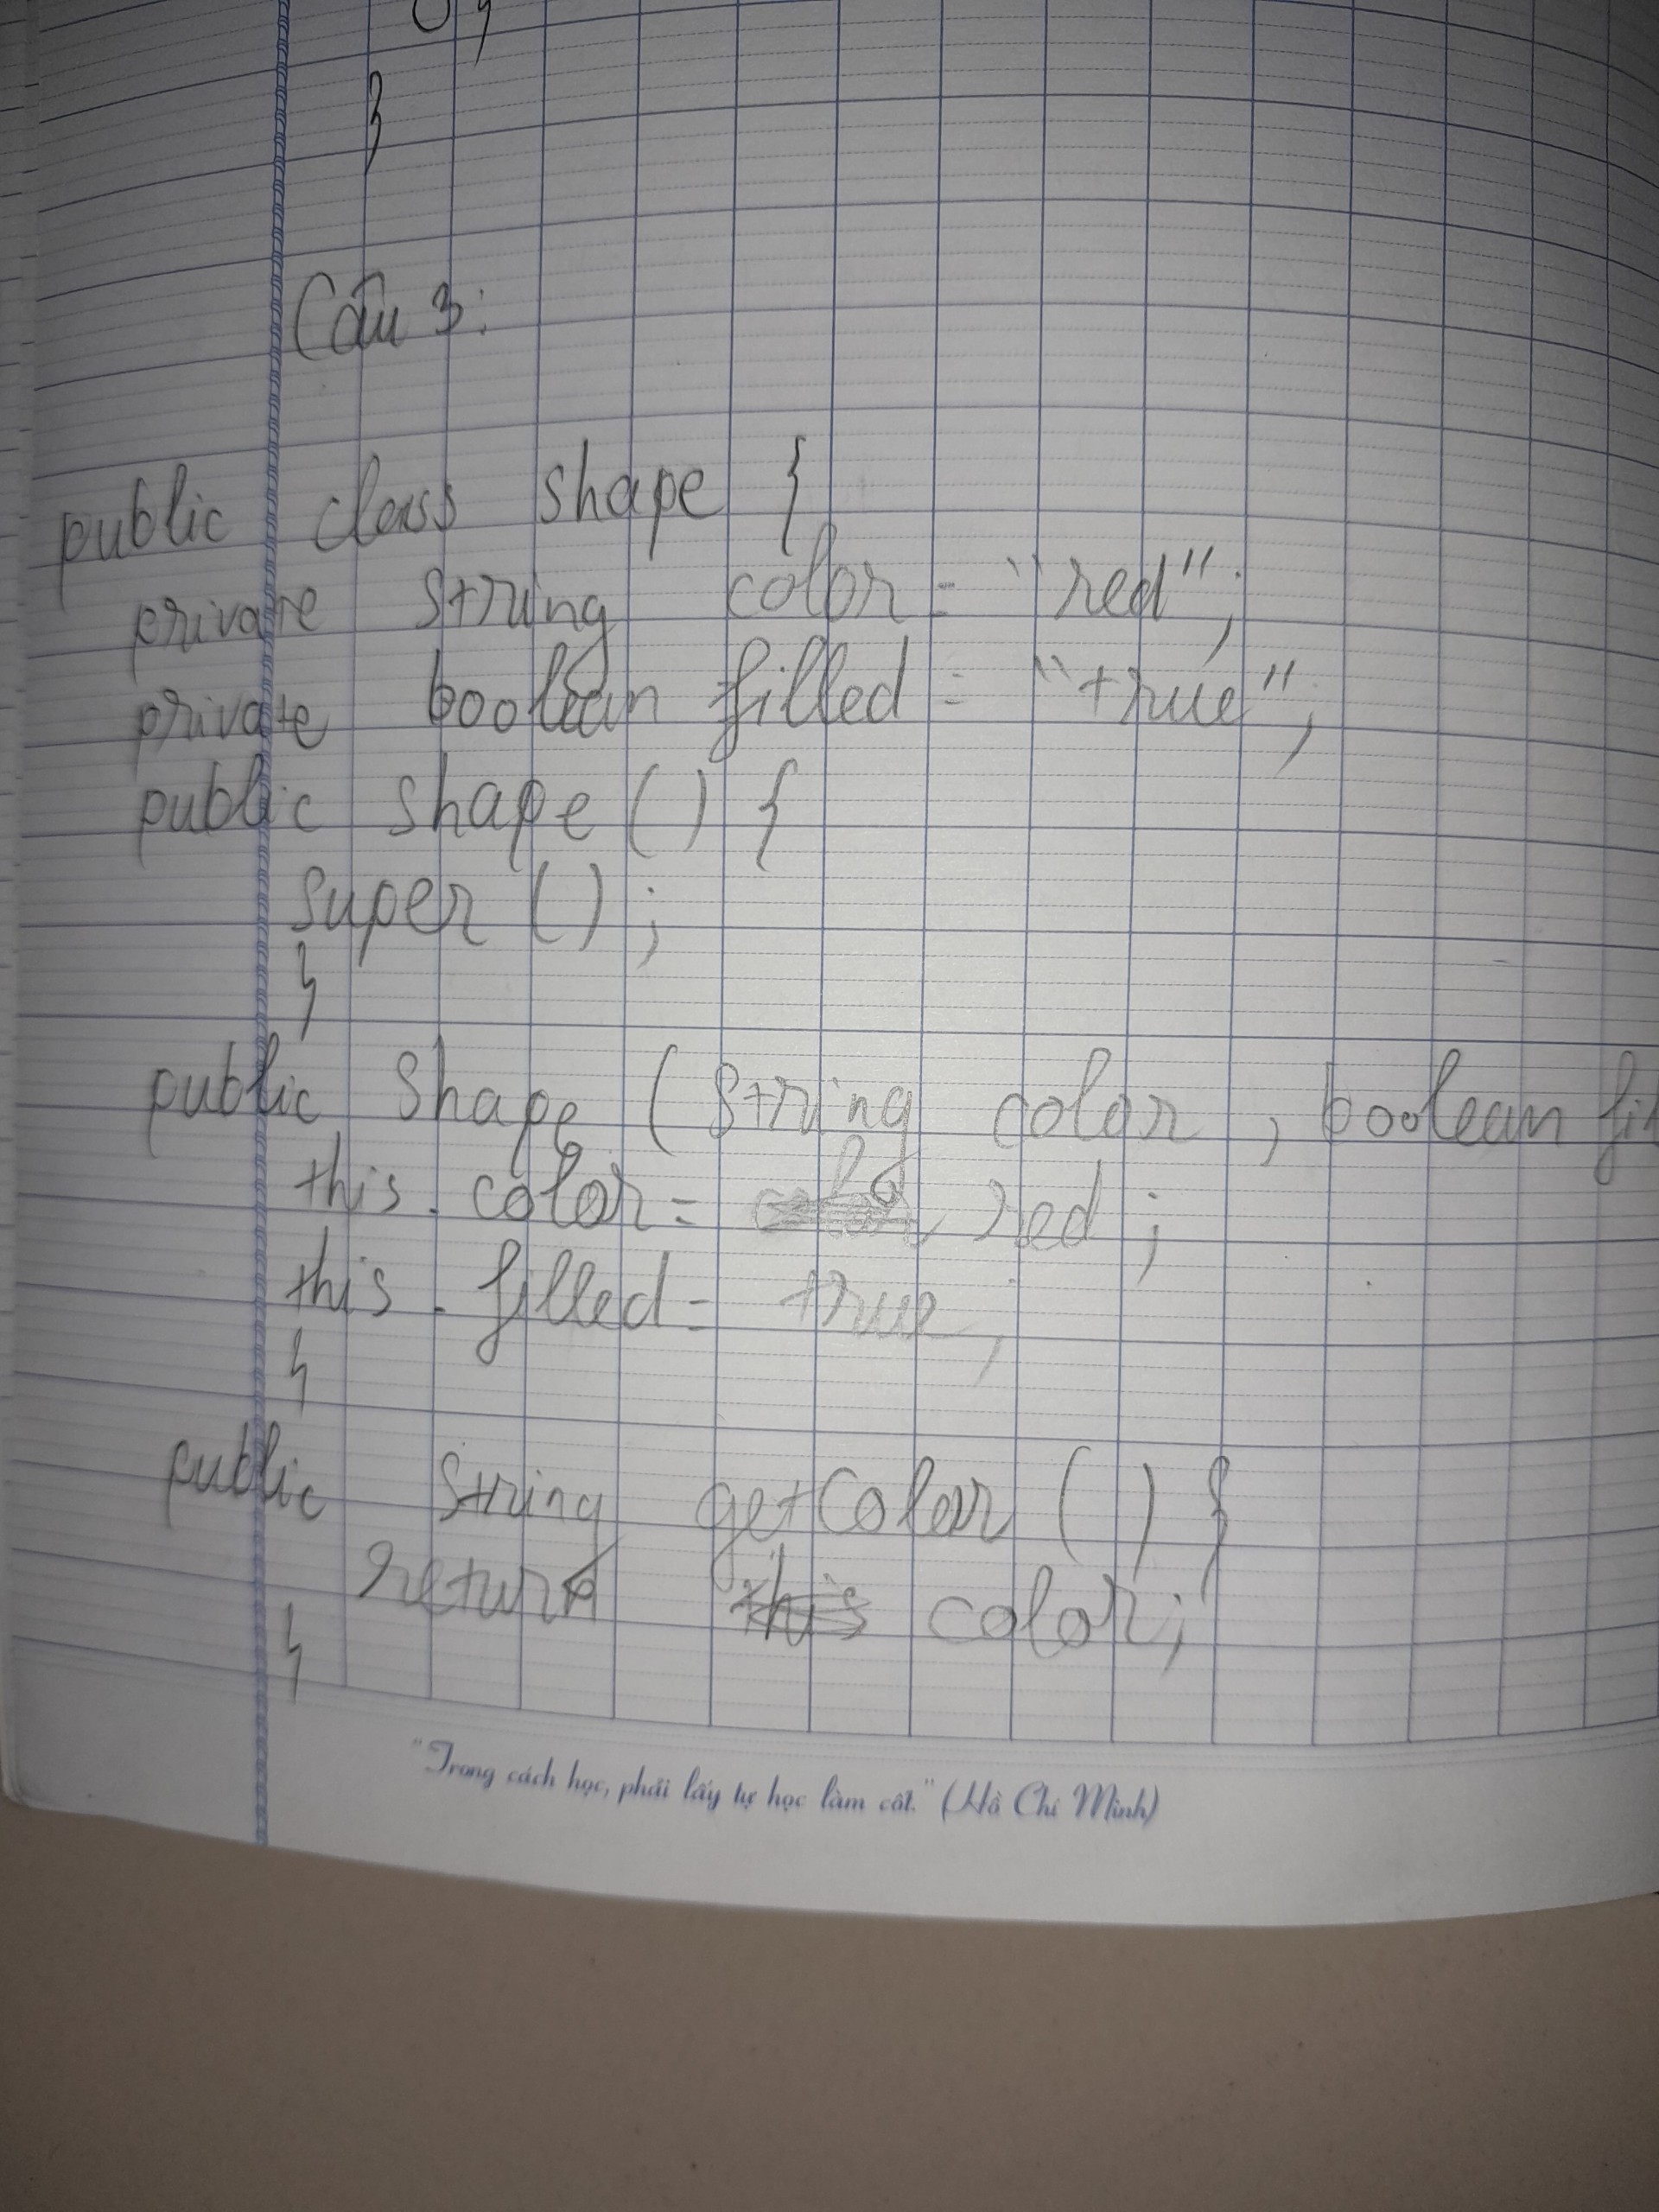 }
Câu 3:
public class shape {
private string color = "red";
private boolean filled = "true";
public shape () {
super () ;
}
public Shape ( String color , boolean fil
this . color = red ;
this . filled = true ;
}
public String getColor () {
return this color ;
}
"Trong cách học, phải lấy tự học làm cốt." (Hồ Chí Minh)